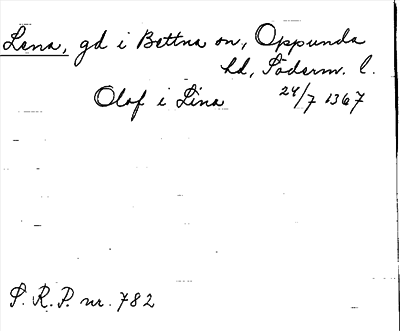 Lena, gd i Bettna sn, Oppunda
hd, Söderm. l.
Olof i Lina 24/7 1367
S. R. P. nr. 782